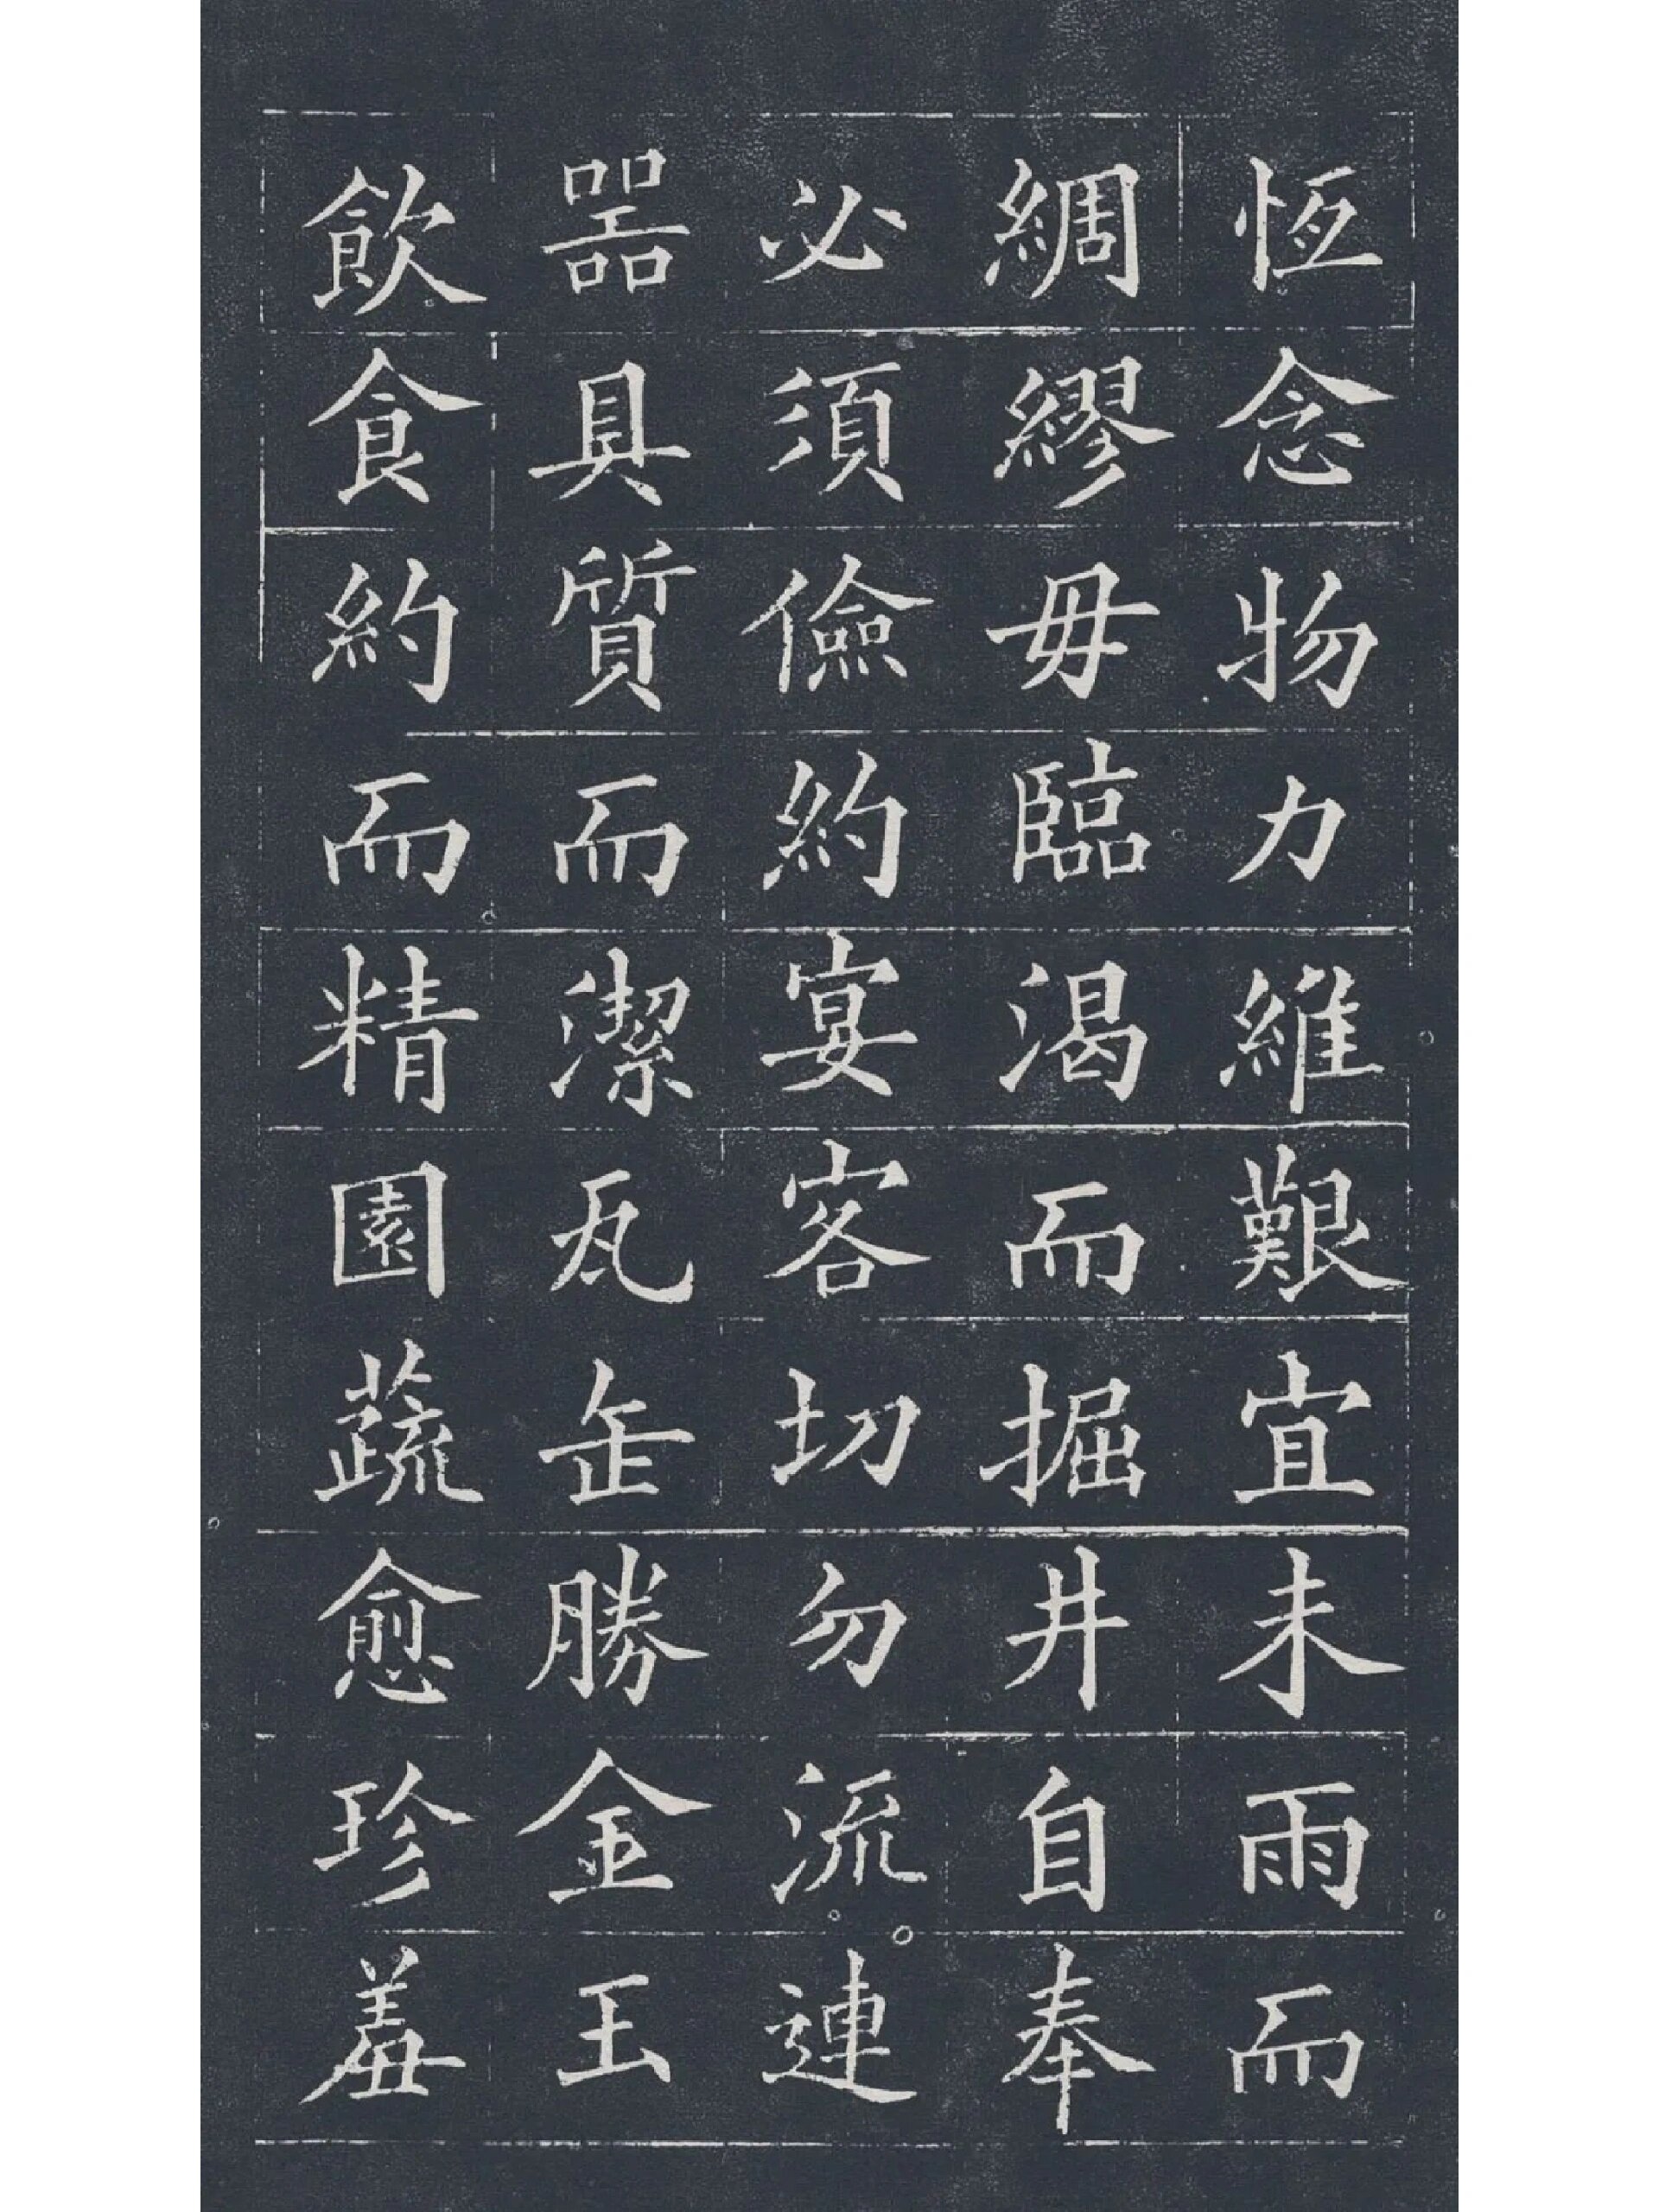 恆念物力維艱宜未雨而
綢繆毋臨渴而掘井自奉
必須儉約宴客切勿流連
器具質而潔瓦缶勝金玉
飲食約而精園蔬愈珍羞